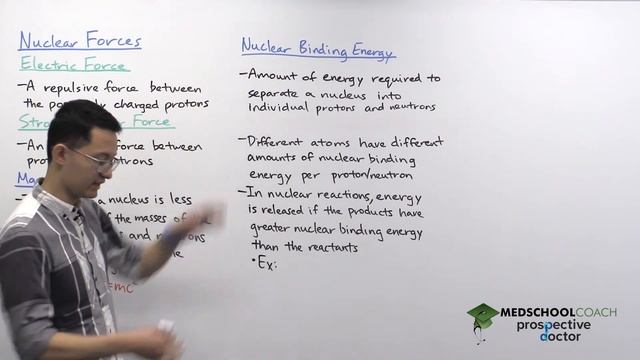 Nuclear Forces
Electric Force
-A repulsive force between
the charged protons
Force
-An force between
a nucleus is less
of the masses of
and neutrons
=mc²
Nuclear Binding Energy
-Amount of energy required to
separate a nucleus into
individual protons and neutrons
-Different atoms have different
amounts of nuclear binding
energy per proton/neutron
-In nuclear reactions, energy
is released if the products have
greater nuclear binding energy
than the reactants
•Ex:
MEDSCHOOLCOACH
prospective
doctor